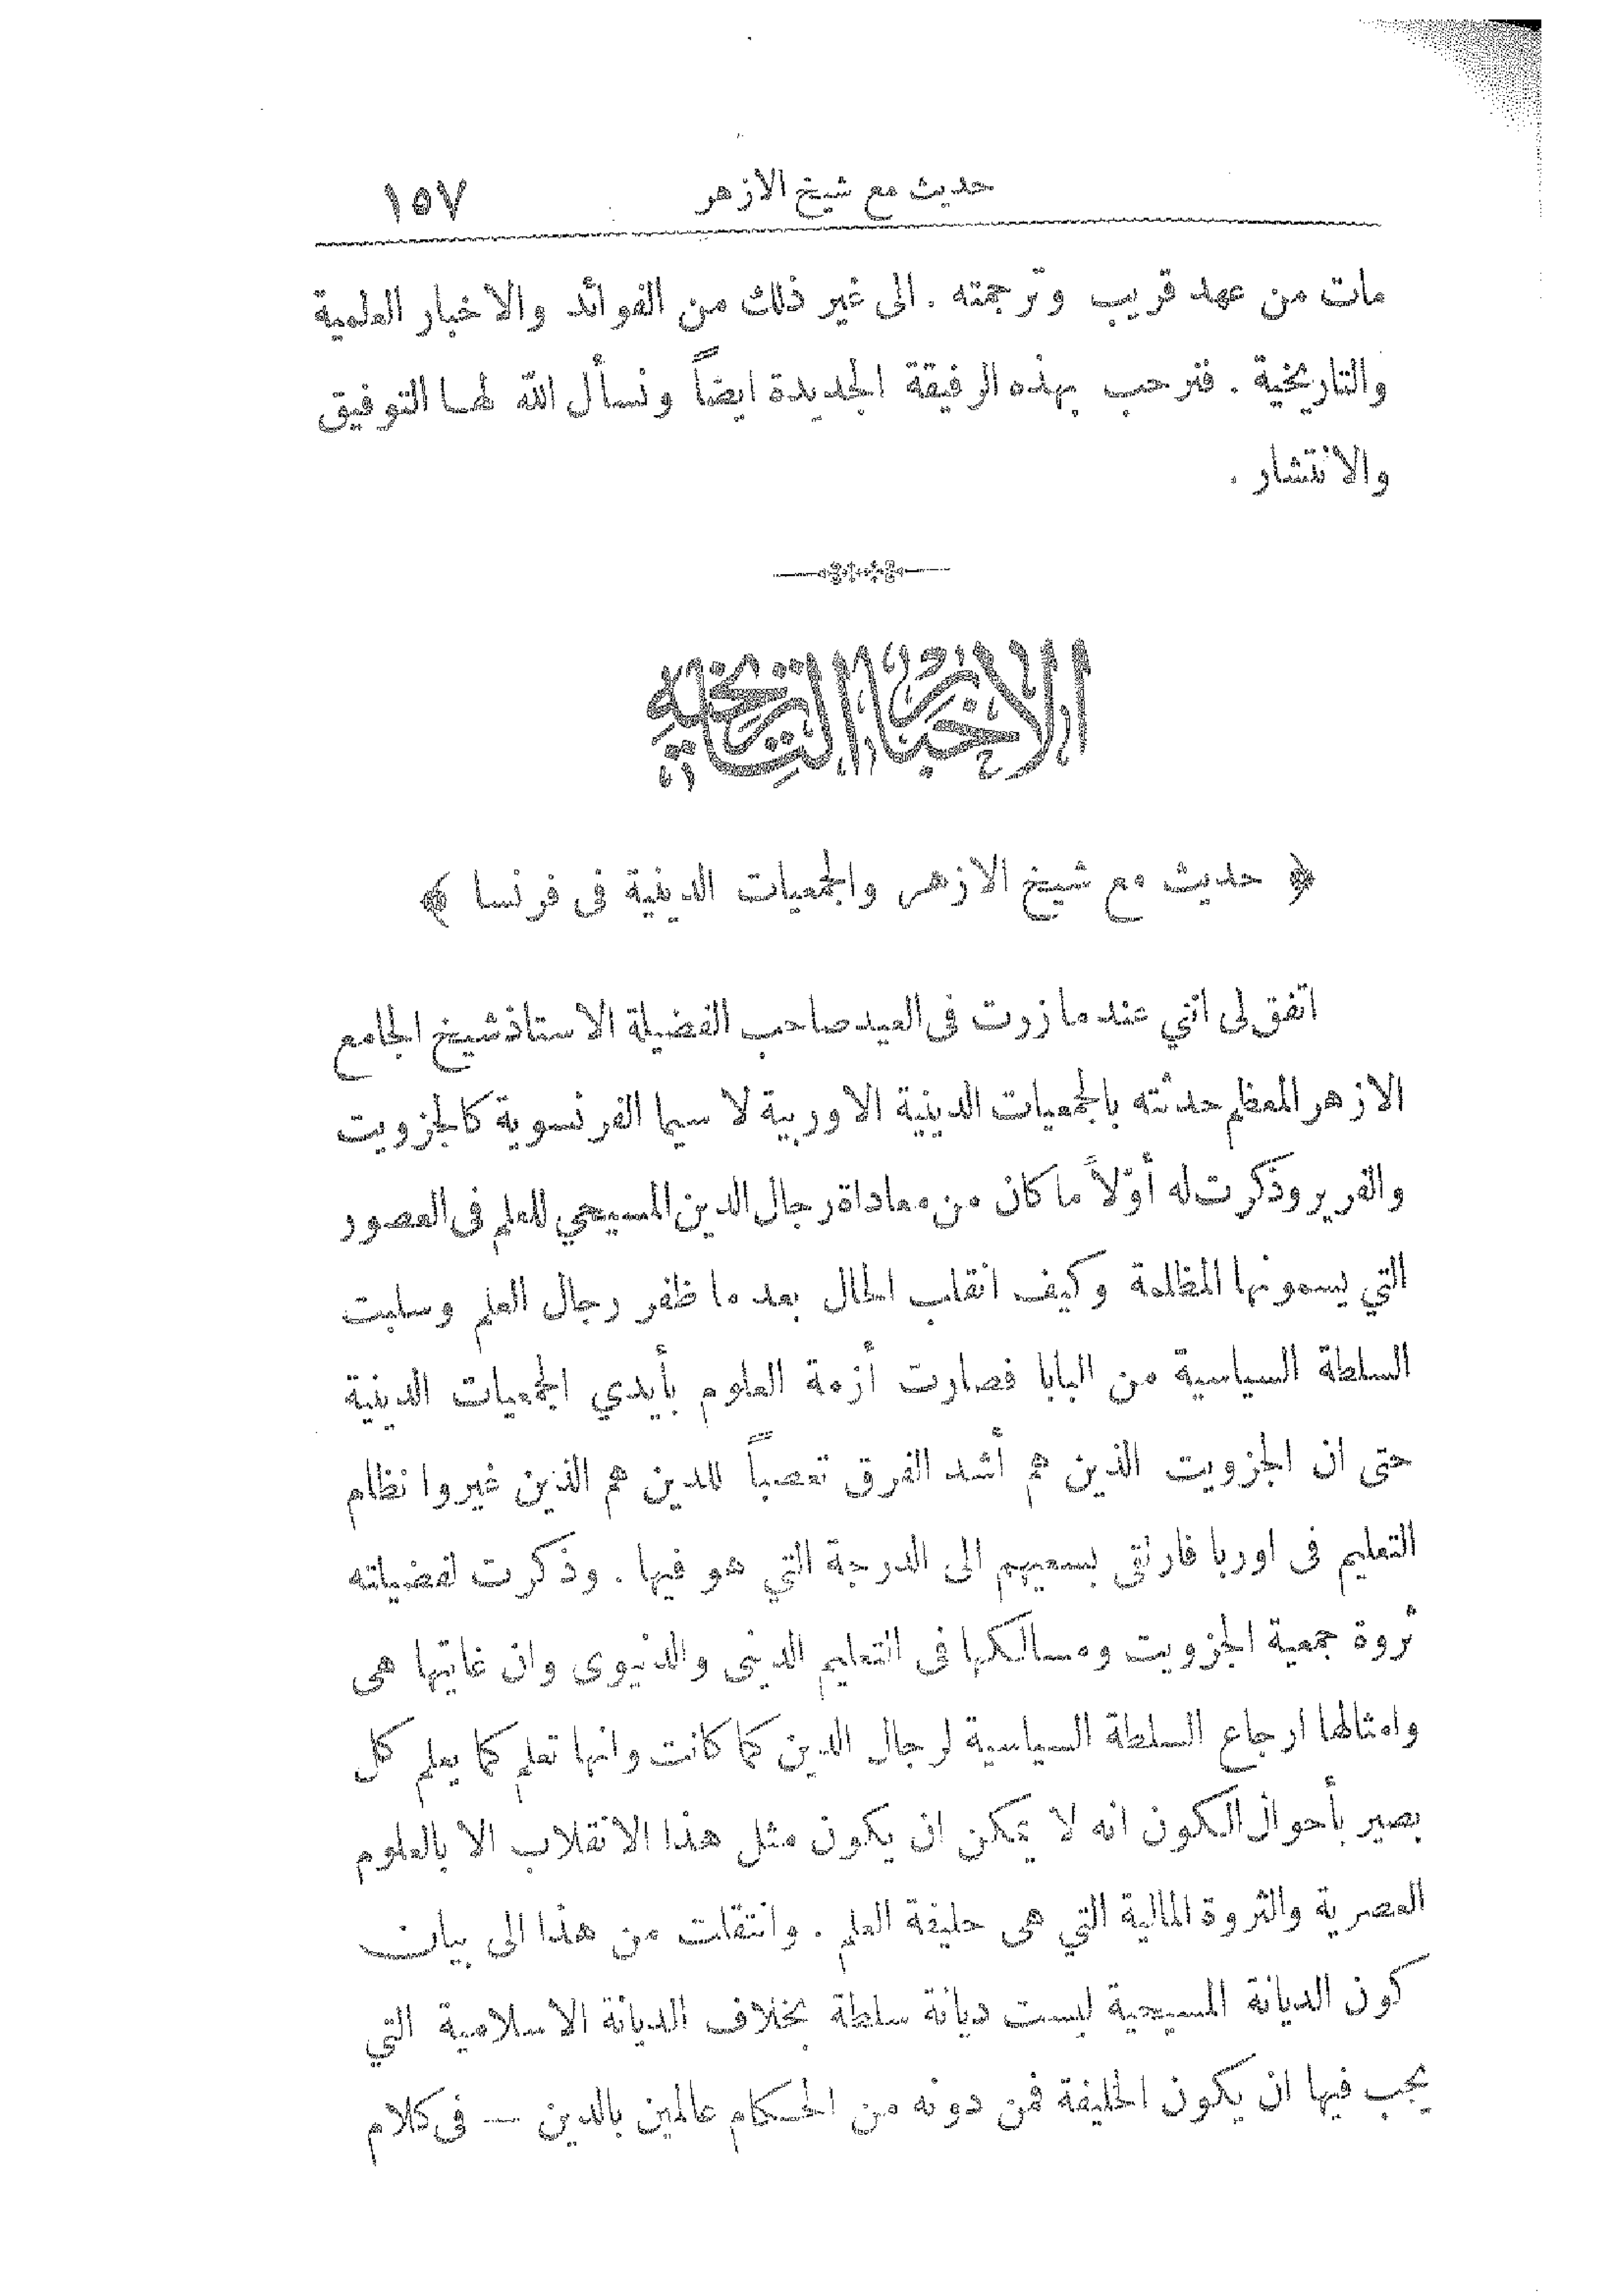 حديث مع شيخ الازهر ١٥٧
مات من عهد قريب وترجمته . الى غير ذلك من الفوائد والاخبار العلمية
والتاريخية . فنرحب بهذه الرفيقة الجديدة ايضاً ونسأل الله لهـا التوفيق
والانتشار .
الاخبار التاريخية
﴿ حديث مع شيخ الازهر والجمعيات الدينية فى فرنسا ﴾
اتفق لى انني عندما زرت فى العيد صاحب الفضيلة الاستاذ شيخ الجامع
الازهر المعظم حدثته بالجمعيات الدينية الاوربية لا سيما الفرنسوية كالجزويت
والفرير وذكرت له أوّلاً ما كان من معاداة رجال الدين المسيحي للعلم فى العصور
التي يسمونها المظلمة وكيف انقلب الحال بعد ما ظفر رجال العلم وسلبت
السلطة السياسية من البابا فصارت أزمة العلوم بأيدي الجمعيات الدينية
حتى ان الجزويت الذين هم أشد الفرق تعصباً للدين هم الذين غيروا نظام
التعليم فى اوربا فارتقى بسعيهم الى الدرجة التي هو فيها . وذكرت لفضيلته
ثروة جمعية الجزويت ومسالكها فى التعليم الديني والدنيوى وان غايتها هى
وامثالها ارجاع السلطة السياسية لرجال الدين كما كانت وانها تعلم كما يعلم كل
بصير بأحوال الكون انه لا يمكن ان يكون مثل هذا الانقلاب الا بالعلوم
العصرية والثروة المالية التي هى حليفة العلم . وانتقلت من هذا الى بيان
كون الديانة المسيحية ليست ديانة سلطة بخلاف الديانة الاسلامية التي
يجب فيها ان يكون الخليفة فمن دونه من الحـكام عالمين بالدين — فى كلام